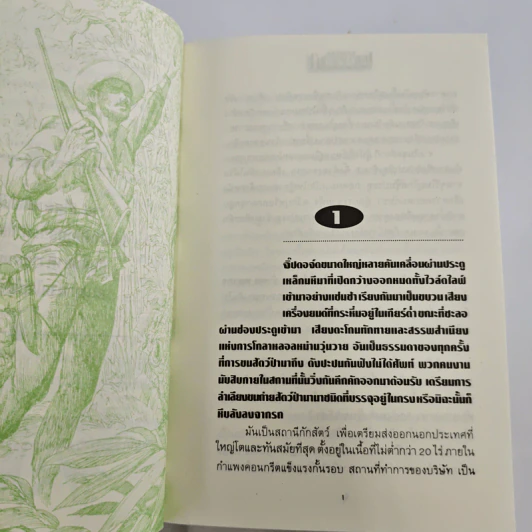 1
จี๊ปดอจ์ดขนาดใหญ่หลายคันเคลื่อนผ่านประตู
เหล็กมหึมาที่เปิดกว้างออกหมดทั้งไวล์ดไลฟ์
เข้ามาอย่างแช่มช้าเรียงกันมาเป็นขบวน เสียง
เครื่องยนต์ที่กระหึ่มอยู่ในเกียร์ต่ำขณะที่ชะลอ
ผ่านช่องประตูเข้ามา เสียงตะโกนทักทายและสรรพสำเนียง
แห่งการโกลาหลอลหม่านวุ่นวาย อันเป็นธรรมดาของทุกครั้ง
ที่การขนสัตว์ป่ามาถึง ดังปะปนกันฟังไม่ได้ศัพท์ พวกคนงาน
นับสิบภายในสถานที่นั้นวิ่งกันคึกคักออกมาต้อนรับ เตรียมการ
ลำเลียงขนถ่ายสัตว์ป่านานาชนิดที่บรรจุอยู่ในกรงหรือมิฉะนั้นก็
หีบลังลงจากรถ
มันเป็นสถานีกักสัตว์ เพื่อเตรียมส่งออกนอกประเทศที่
ใหญ่โตและทันสมัยที่สุด ตั้งอยู่ในเนื้อที่ไม่ต่ำกว่า 20 ไร่ ภายใน
กำแพงคอนกรีตแข็งแรงกั้นรอบ สถานที่ทำการของบริษัท เป็น
1